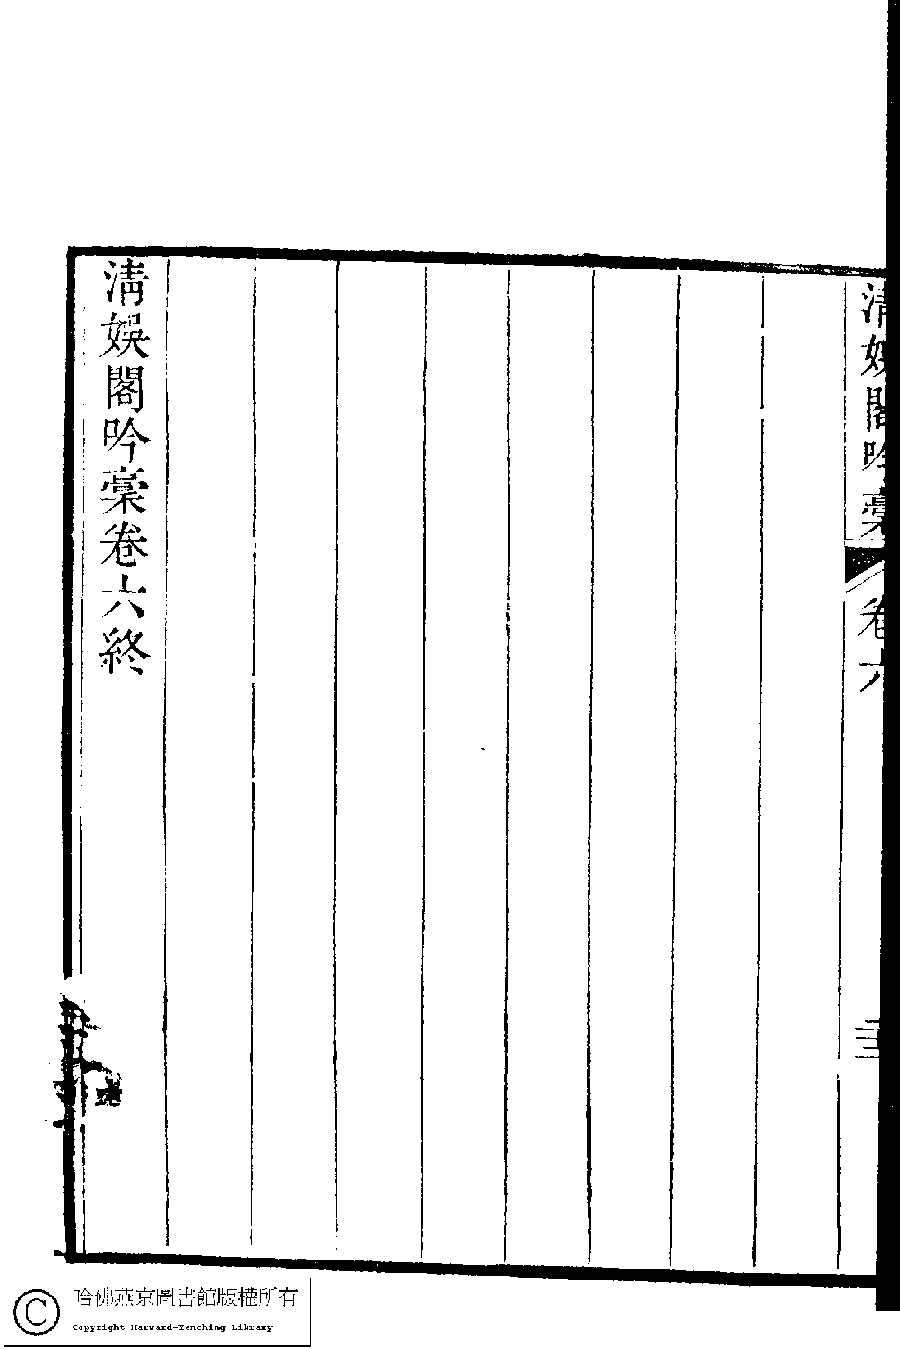 清娛閣吟稾
卷六
清娛閣吟稾卷六終
哈佛燕京圖書館版權所有
Copyright Harvard-Yenching Library